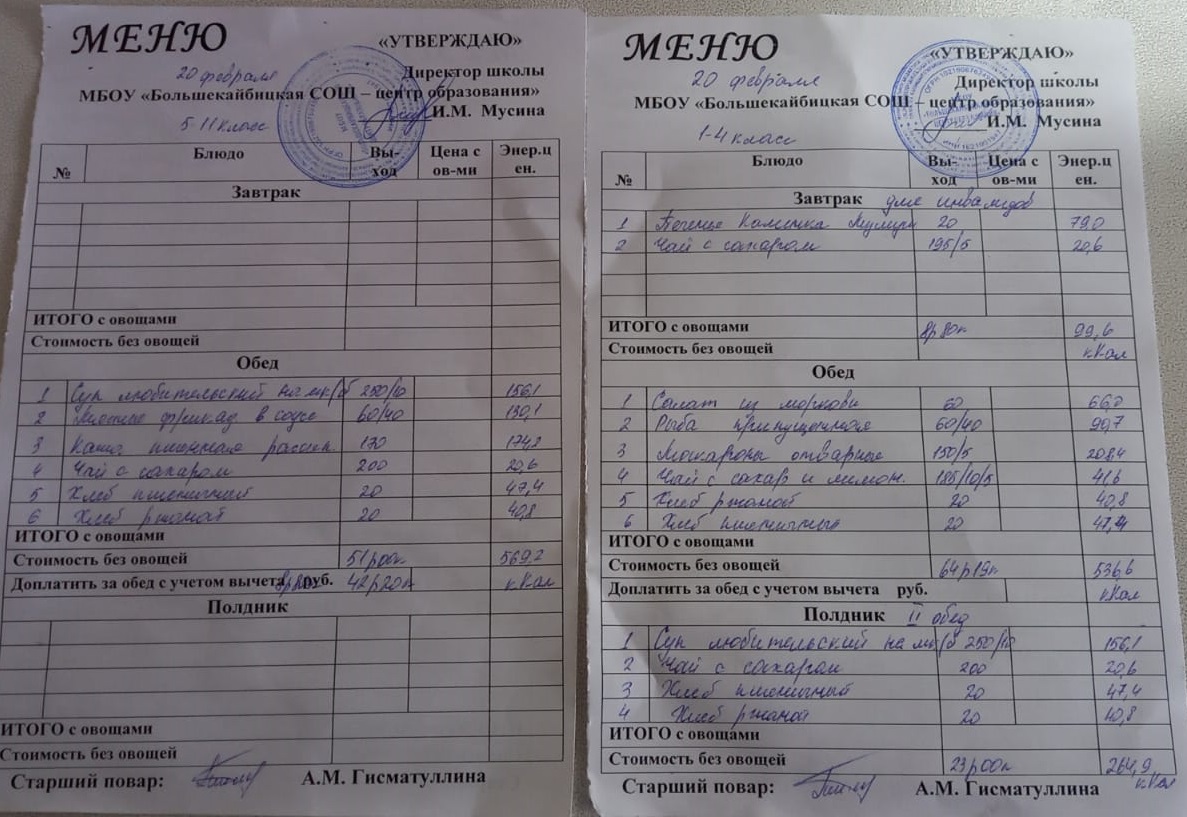 МЕНЮ
«УТВЕРЖДАЮ»
20 февраля
Директор школы
МБОУ «Большекайбицкая СОШ – центр образования»
И.М. Мусина
5-11 класс
№ Блюдо Вы-ход Цена с ов-ми Энер.ц ен.
Завтрак
ИТОГО с овощами
Стоимость без овощей
Обед
1 Суп любительский на мк/б 250/10 156,1
2 фрикад. в соусе 60/40 130,1
3 Каша пшенная рассып 130 174,2
4 Чай с сахаром 200 20,6
5 Хлеб пшеничный 20 47,4
6 Хлеб ржаной 20 40,8
ИТОГО с овощами
Стоимость без овощей 51р00к 569,2
Доплатить за обед с учетом вычета 8р80к руб. 42р20к кКал
Полдник
ИТОГО с овощами
Стоимость без овощей
Старший повар: А.М. Гисматуллина
МЕНЮ
«УТВЕРЖДАЮ»
20 февраля
Директор школы
МБОУ «Большекайбицкая СОШ – центр образования»
И.М. Мусина
1-4 класс
№ Блюдо Вы-ход Цена с ов-ми Энер.ц ен.
Завтрак для инвалидов
1 Печенье 20 79,0
2 Чай с сахаром 195/5 20,6
ИТОГО с овощами 8р80к 99,6
Стоимость без овощей кКал
Обед
1 Салат из моркови 60 66,0
2 Рыба припущенная 60/40 90,7
3 Макароны отварные 150/5 208,4
4 Чай с сахар и лимон. 185/10/5 41,6
5 Хлеб ржаной 20 40,8
6 Хлеб пшеничный 20 47,4
ИТОГО с овощами
Стоимость без овощей 64р19к 536,6
Доплатить за обед с учетом вычета руб. кКал
Полдник II обед
1 Суп любительский на мк/б 250/10 156,1
2 Чай с сахаром 200 20,6
3 Хлеб пшеничный 20 47,4
4 Хлеб ржаной 20 40,8
ИТОГО с овощами
Стоимость без овощей 23р00к 264,9 кКал
Старший повар: А.М. Гисматуллина